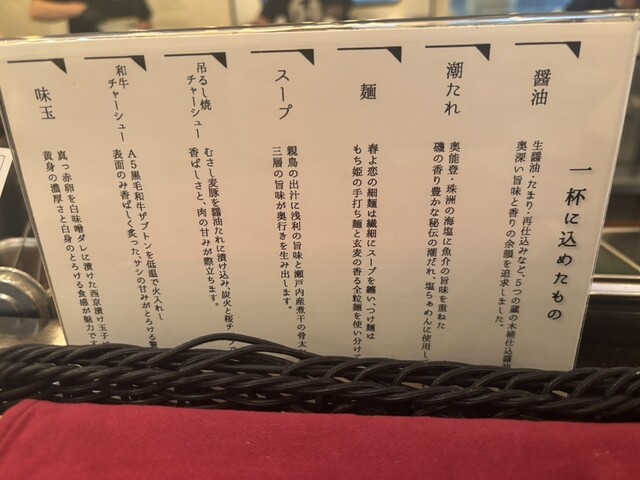 一杯に込めたもの
醤油
生醤油・たまり・再仕込みなど、5つの蔵の木桶仕込醤油
奥深い旨味と香りの余韻を追求しました。
潮たれ
奥能登・珠洲の海塩に魚介の旨味を重ねた
磯の香り豊かな秘伝の潮だれ、塩らぁめんに使用し
麺
春よ恋の細麺は繊細にスープを纏い、つけ麺は
もち姫の手打ち麺と玄麦の香る全粒麺を使い分けて
スープ
親鳥の出汁に浅利の旨味と瀬戸内産煮干の骨太
三層の旨味が奥行きを生み出します。
吊るし焼
チャーシュー
むさし麦豚を醤油たれに漬け込み、炭火と桜チップの
香ばしさと、肉の甘みが際立ちます。
和牛
チャーシュー
A5黒毛和牛ザブトンを低温で火入れし
表面のみ香ばしく炙った、サシの甘みがとろける
味玉
真っ赤卵を白味噌ダレに漬けた西京漬け玉子
黄身の濃厚さと白身のとろける食感が魅力で